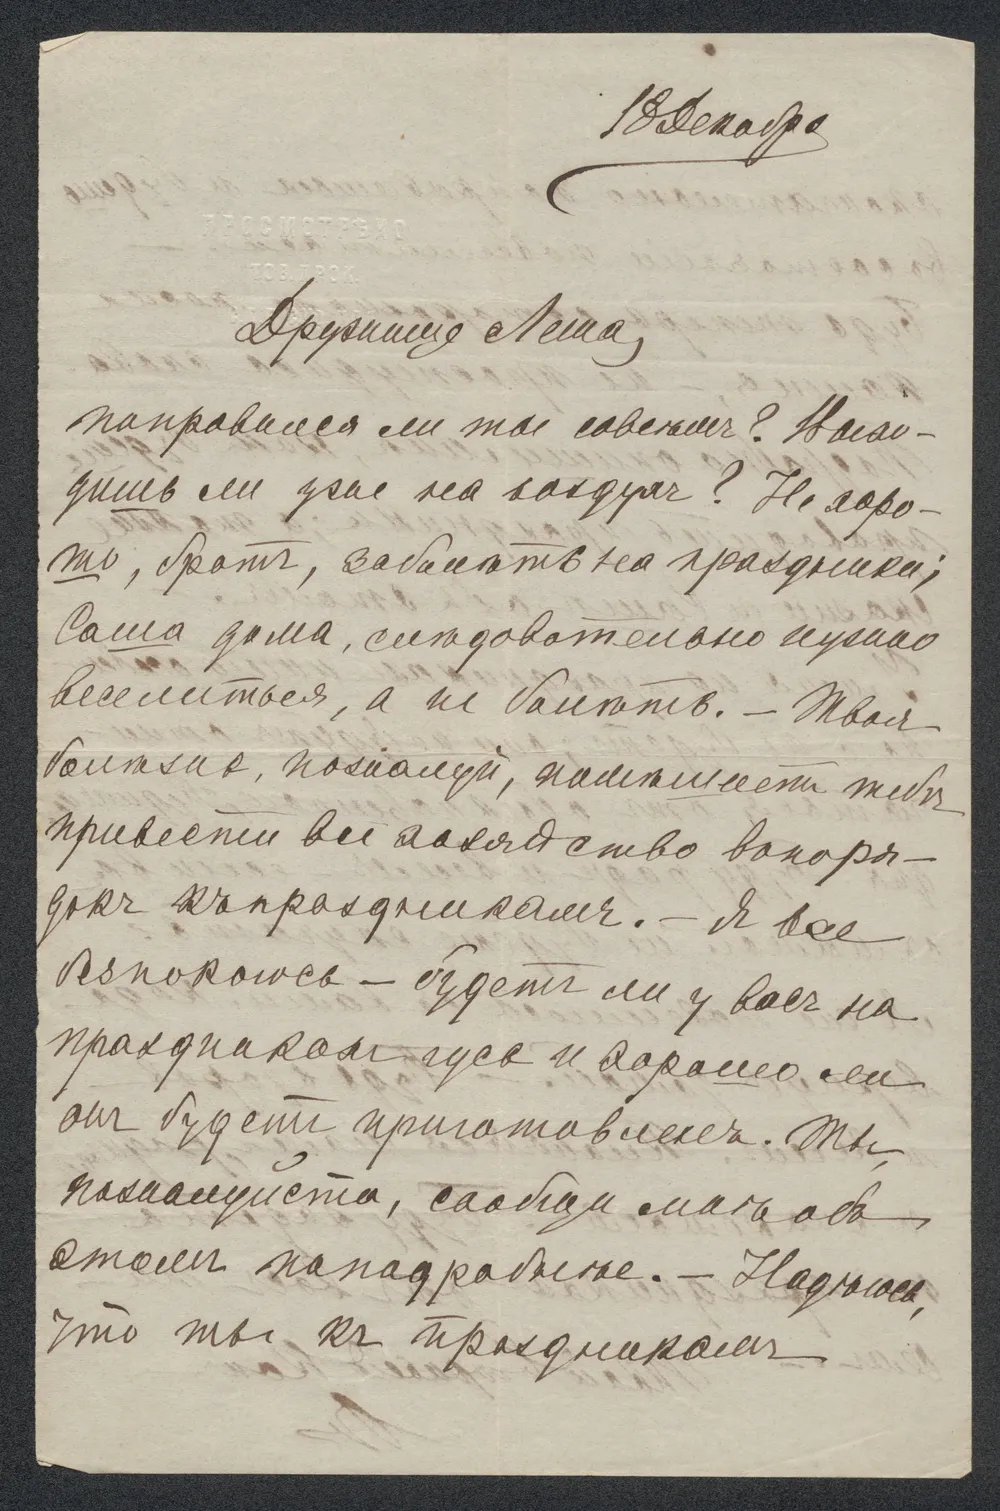 18 Декабря
ПРОСМОТРѢНО
ТОВ. ПРОК.
Дружище Леша,
поправился ли ты совсемъ? Выхо-
дишь ли уже на воздухъ? Не хоро-
шо, братъ, заболѣть на праздники;
Саша дома, слѣдовательно нужно
веселиться, а не болѣть. – Твоя
болѣзнь, пожалуй, помѣшаетъ тебѣ
привести все хозяйство въ поря-
докъ къ праздникамъ. – Я все
безпокоюсь – будетъ ли у васъ на
праздникахъ гусь и хорошо ли
онъ будетъ приготовленъ. Ты,
пожалуйста, сообщи мнѣ объ
этомъ поподробнѣе. – Надѣюсь,
что ты къ праздникамъ